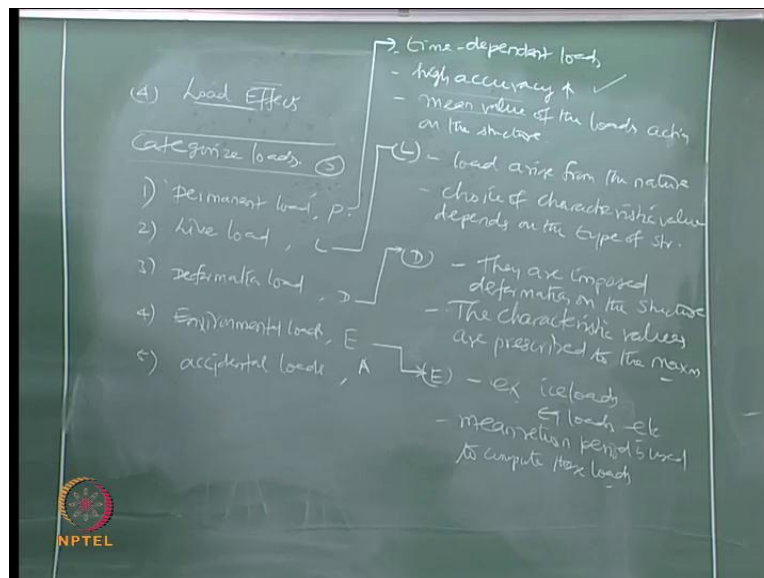 (4) Load Effect
Categorize loads. (5)
1) Permanent load, P.
2) Live load, L
3) Deformation load, D
4) Environmental loads, E
5) accidental loads, A
- time-dependent loads
- high accuracy ↑ ✓
- mean value of the loads acting
on the structure
(L) - load arise from the nature
- choice of characteristic value
depends on the type of str.
(D) - They are imposed
deformation on the structure
- The characteristic values
are prescribed to the maxm
(E) - ex ice loads
loads etc
- mean return period is used
to compute these loads
NPTEL